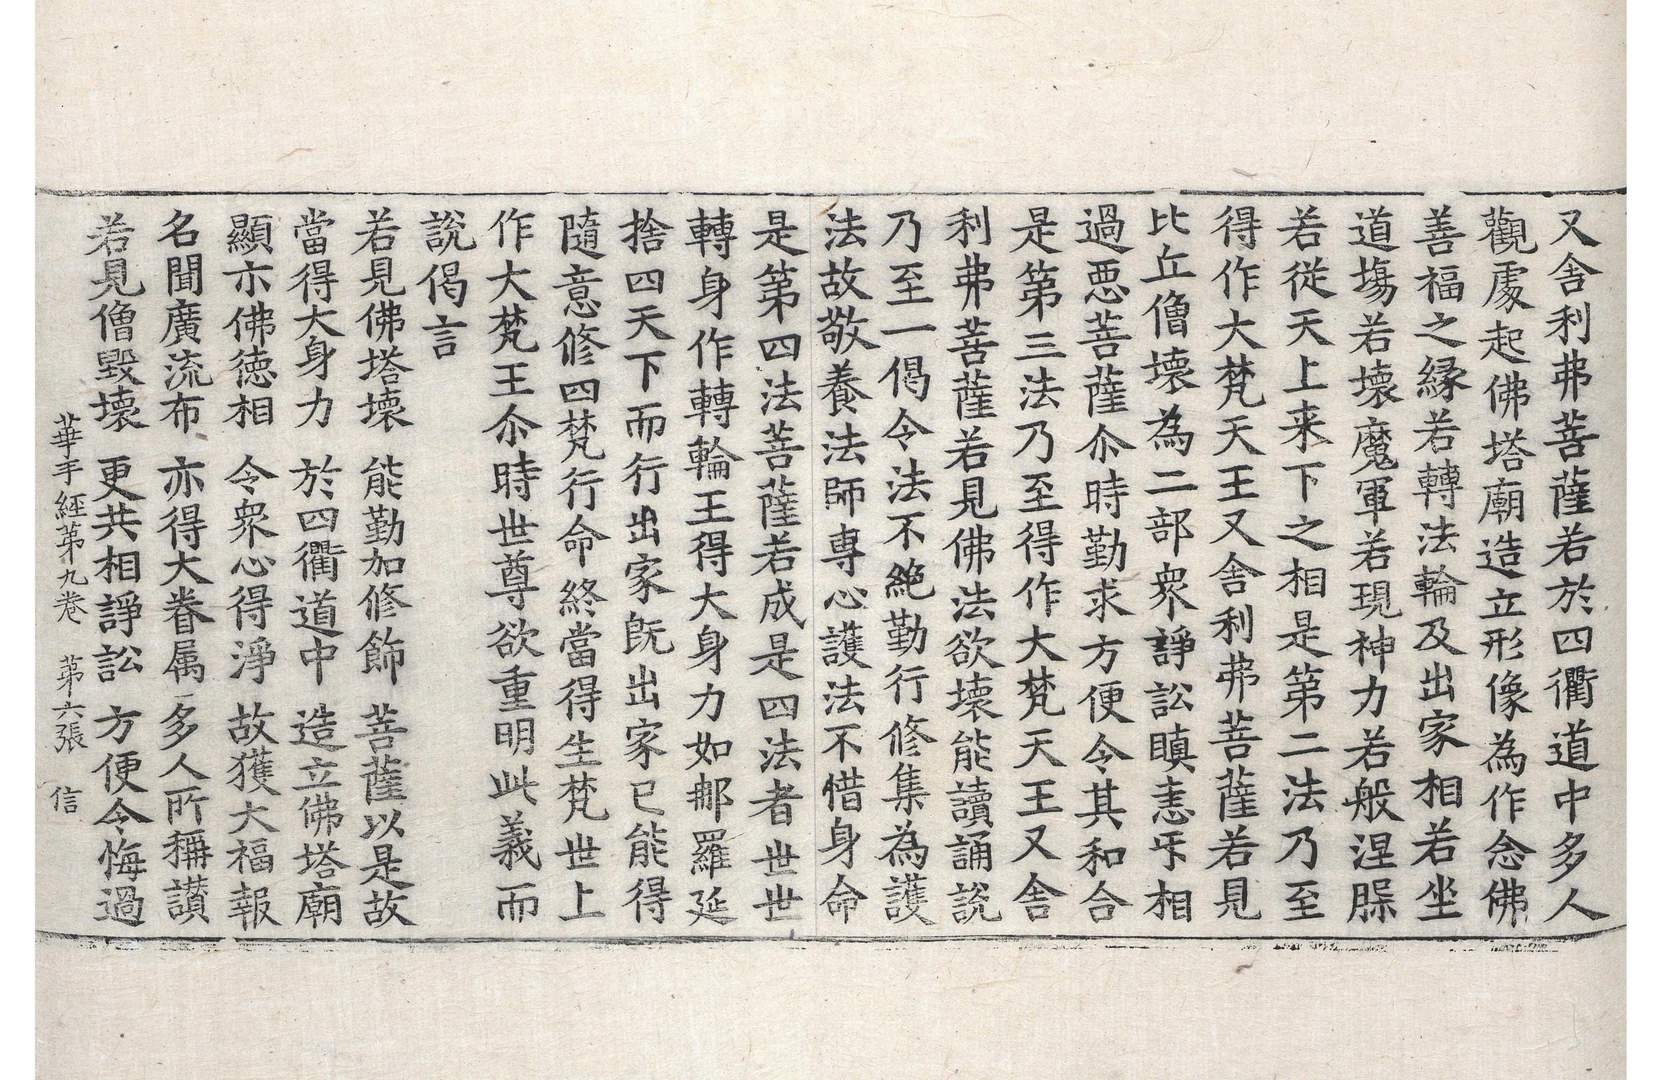 又舍利弗菩薩若於四衢道中多人
觀處起佛塔廟造立形像為作念佛
善福之緣若轉法輪及出家相若坐
道塲若壞魔軍若現神力若般涅槃
若從天上来下之相是第二法乃至
得作大梵天王又舍利弗菩薩若見
比丘僧壞為二部衆諍訟瞋恚㸦相
過惡菩薩尒時勤求方便令其和合
是第三法乃至得作大梵天王又舍
利弗菩薩若見佛法欲壞能讀誦說
乃至一偈令法不絶勤行修集為護
法故敬養法師專心護法不惜身命
是第四法菩薩若成是四法者世世
轉身作轉輪王得大身力如那羅延
捨四天下而行出家旣出家已能得
隨意修四梵行命終當得生梵世上
作大梵王尒時世尊欲重明此義而
說偈言
若見佛塔壞 能勤加修飾 菩薩以是故
當得大身力 於四衢道中 造立佛塔廟
顯示佛徳相 令衆心得淨 故獲大福報
名聞廣流布 亦得大眷属 多人所稱讃
若見僧毀壞 更共相諍訟 方便令悔過
華手經第九卷 第六張 信